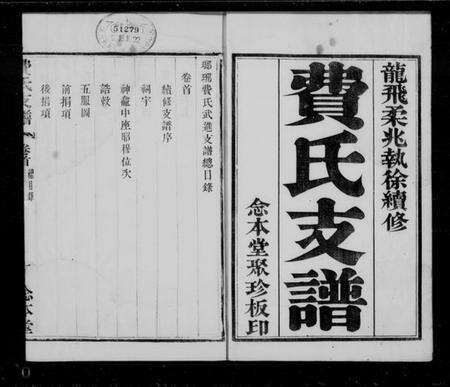 龍飛柔兆執徐續修
費氏支譜
念本堂聚珍板印
51279
瑯琊費氏武進支譜總目錄
卷首
續修支譜序
祠宇
神龕中座昭穆位次
誥敕
五服圖
前捐項
後捐項
費氏支譜
卷首
總目錄
一
念本堂